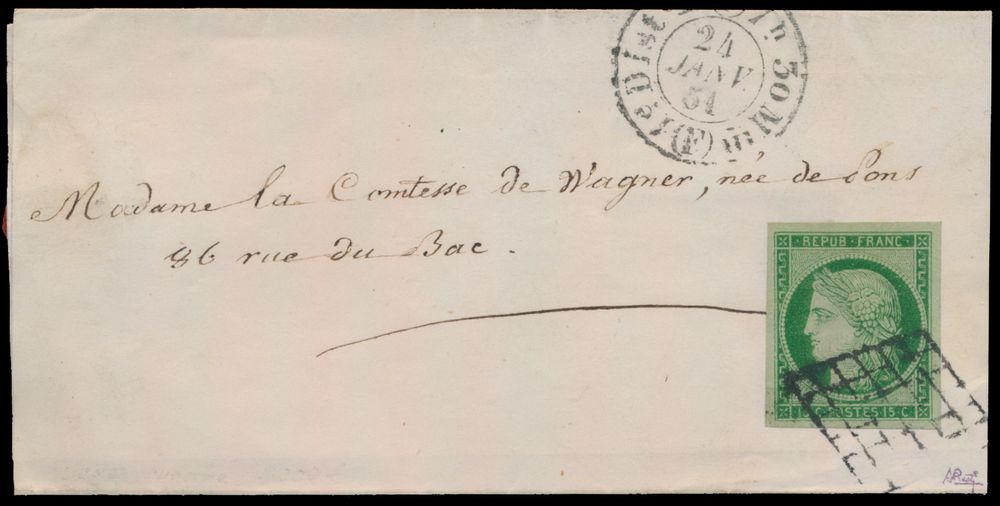 24
JANV.
51
(F)
Madame la Comtesse de Wagner, née de Pons
86 rue du Bac.
REPUB·FRANC·
15 C·POSTES 15·C·